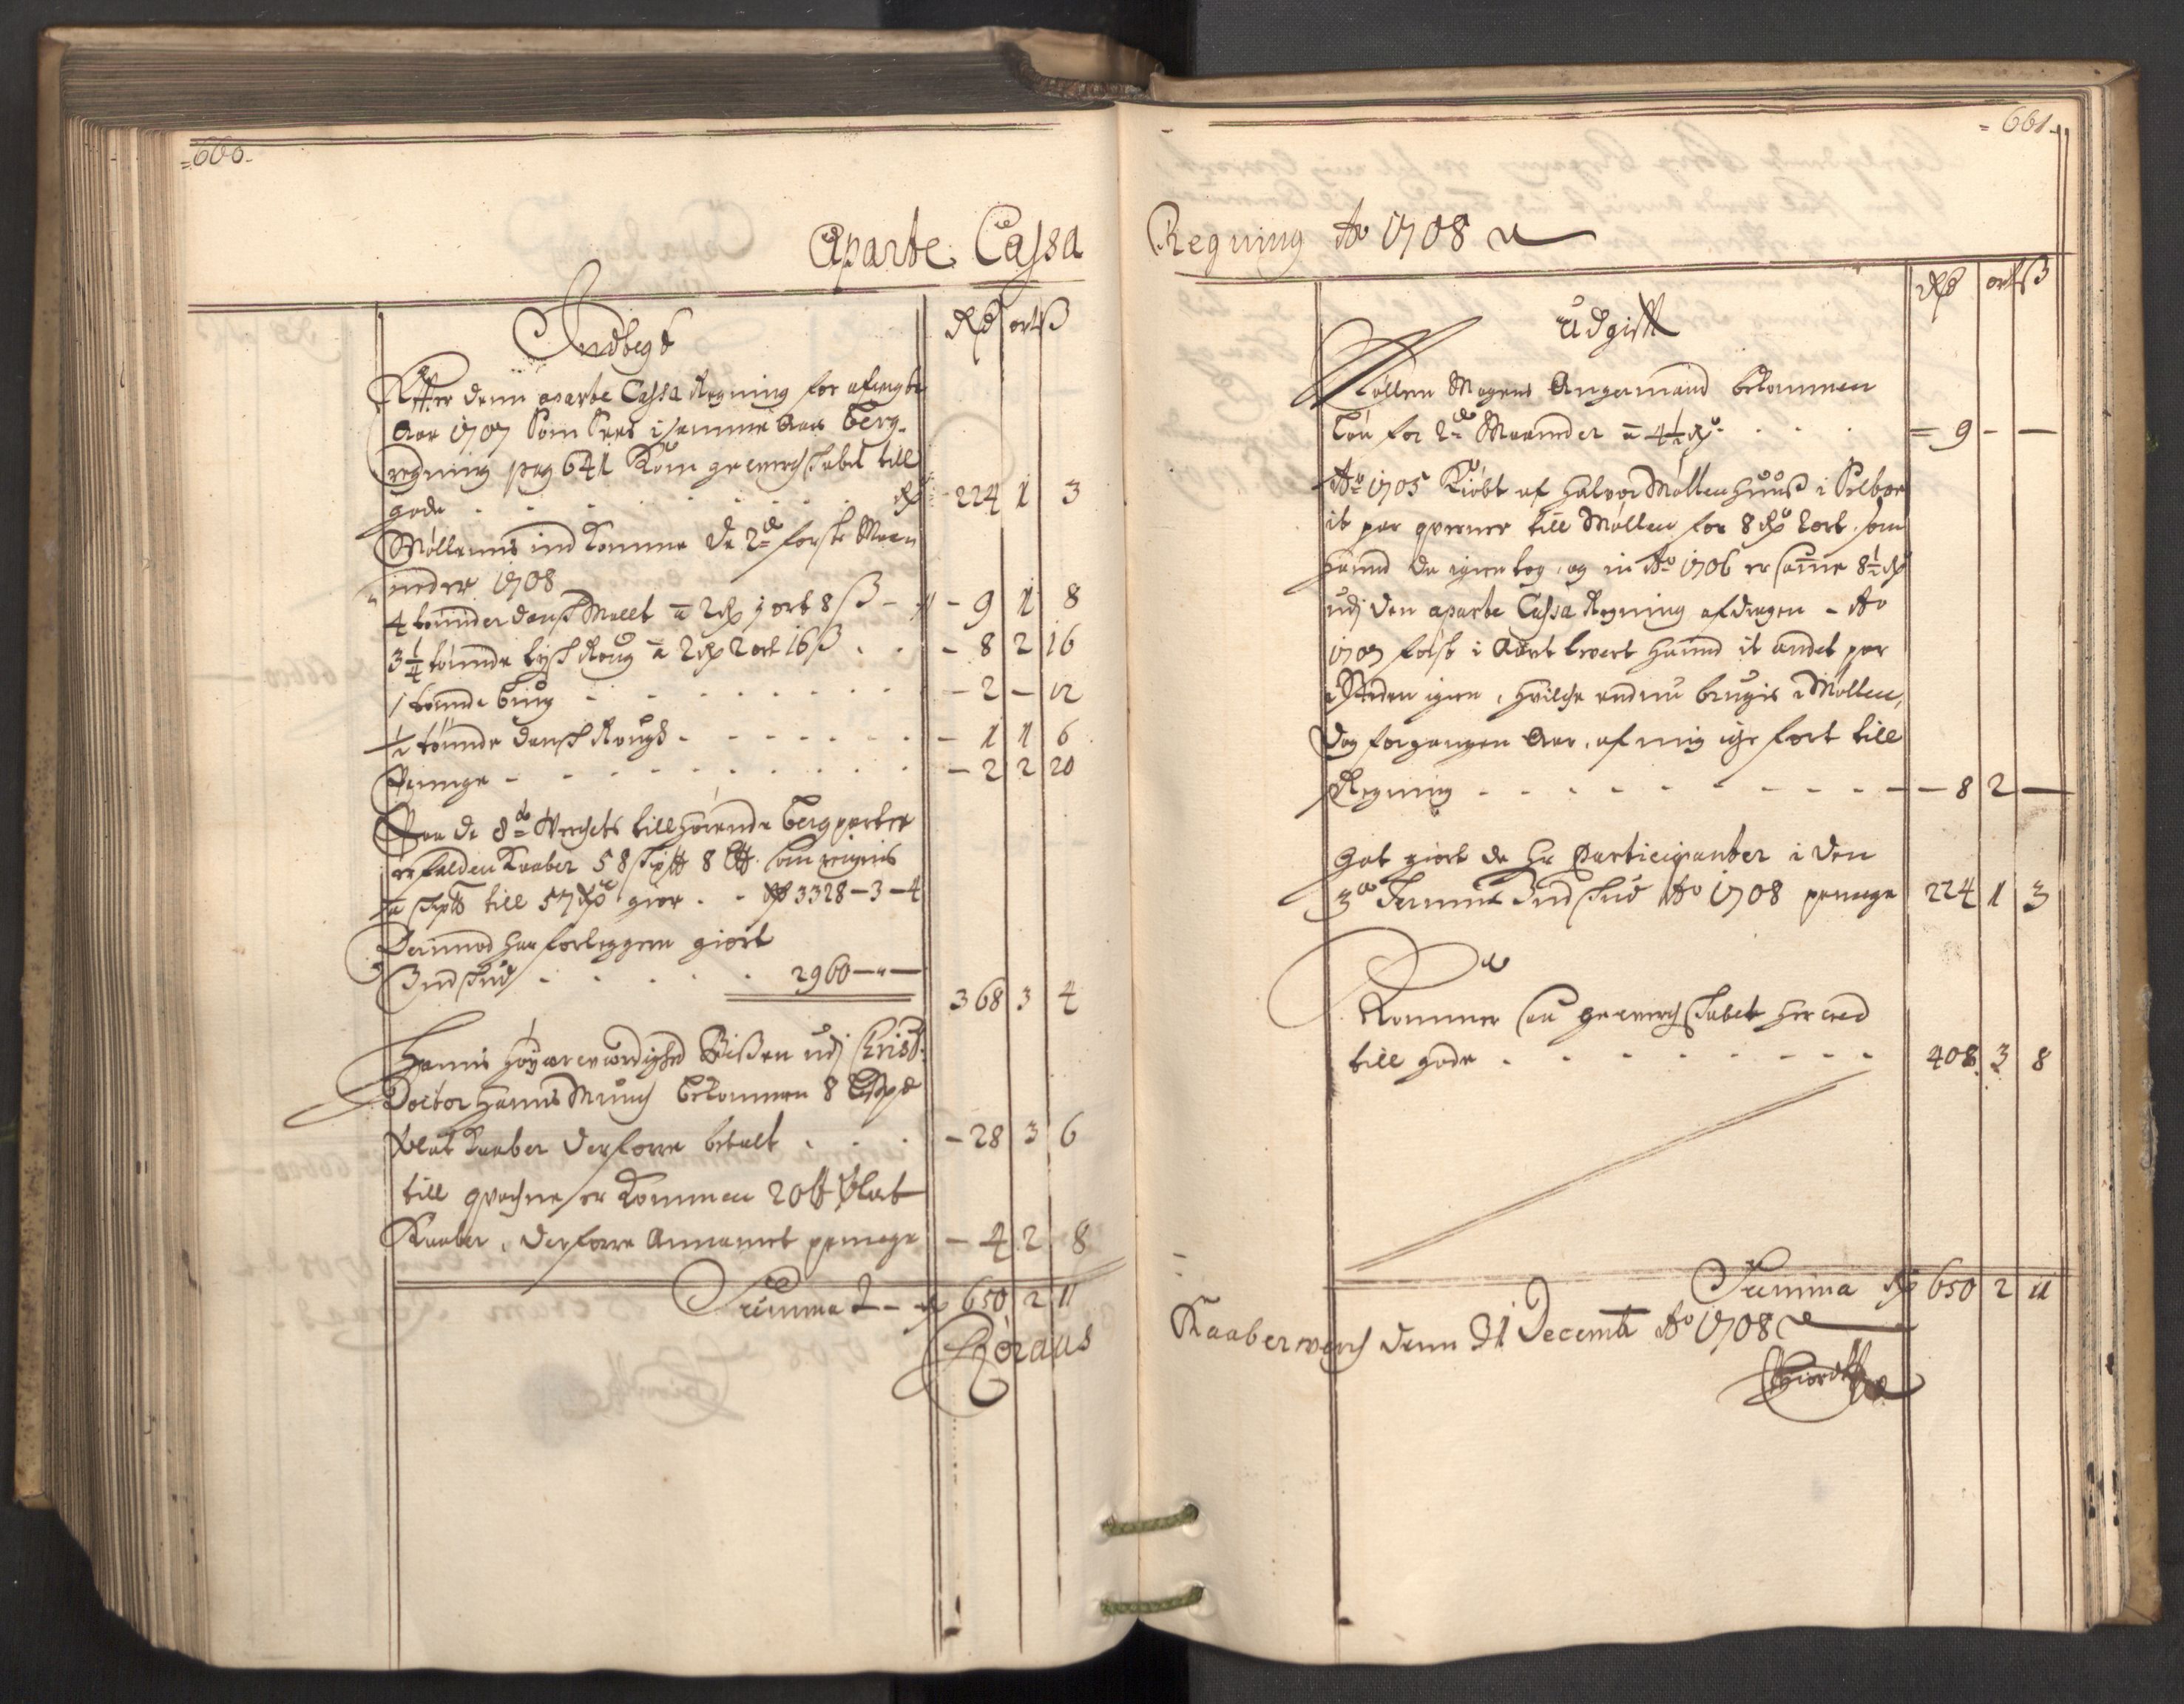 =660-
Aparte Cassa
Indtegt
Rd ort ß
Effter denn aparte Cassa Regning for afvigte
Aar 1707 som sees i samme Aars berg-
regning pag 641 Kom gewerchskabet till
gode . . . . . . Rd 224 1 3
Møllens ind komme de 2de første Maan
neder 1708
4 tønder dansk Mallt a 2 Rd 1 ort 8 ß - 9 1 8
3 1/4 tønde tysk Roug a 2 Rd 2 ort 16 ß . . - 8 2 16
1 tønde biug - - - - - - - - 2 - 12
1/2 tønde dansk Rougs - - - - - - - 1 1 6
Penge - - - - - - - - - - 2 2 20
Paa de 8de Werchets tillhørende bergparter
er falden Kaaber 58 skp 8 som reignis
a skp till 57 Rd giør . . Rd 3328-3-4
Derimod har forleggerne giort
Indskud - . . . . 2960-"-
368 3 4
Hanns Høyærværdighed Bispen udj Christ:
Doctor Hanns Munch bekommen 8
Plat Kaaber derforre betalt . . . - 28 3 6
till er Kommen 20 Plat
Kaaber, derforre Annammet penge - 4 2 8
Summa - Rd 650 2 11
Røraas
=661-
Regning Ao 1708
Udgifft
Rd ort ß
Mølleren Mogens Angermand bekommen
Løn for 2de Maaneder a 4 1/2 Rd . . . = 9 - -
Ao 1705 Kiøbt af Halvor Møllenhuus i Selboe
it par qverner till Møllen for 8 Rd 2 ort som
hand da igien tog, og in Ao 1706 er samme 8 1/2 Rd
udj den aparte Cassa Regning afdragen - Ao
1707 førset i hand it andet par
i Steden igien, hvilche endnu brugis i Møllen,
dog forgangen Aar, af mig ickeført till
Regning - - - - - - - - - - 8 2 -
Hat giort de Hr Participanter i den
3de Termin Indskud Ao 1708 penge 224 1 3
Kommer saa gewerchskabet her ved
till gode . - - - - - - - - 408 3 8
Summa Rd 650 2 11
Kaaberwerch denn 31 Decemb Ao 1708